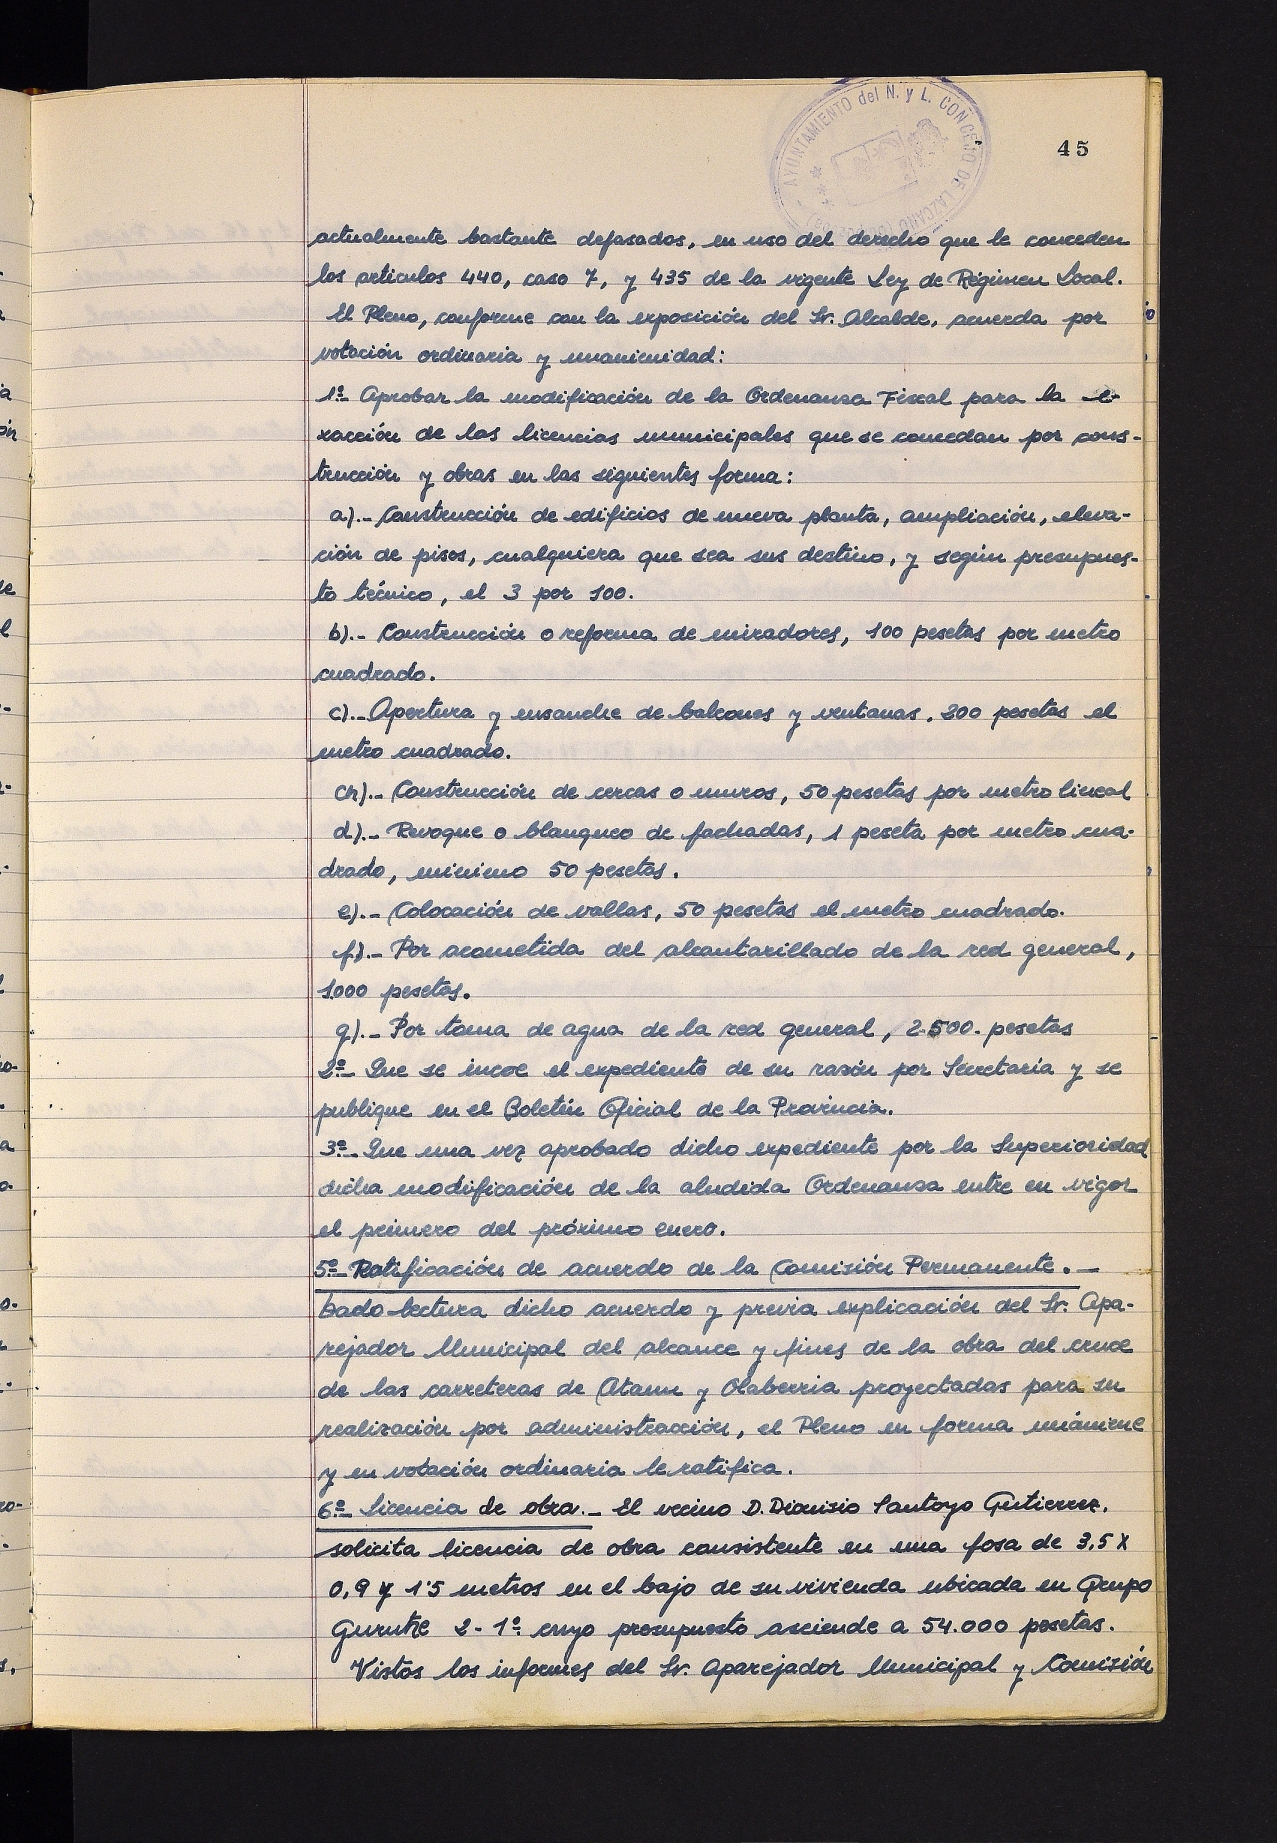 AYUNTAMIENTO del N. y L. CONCEJO DE LAZCANO
45
actualmente bastante defasados, en uso del derecho que le conceden
los articulos 440, caso 7, y 435 de la vigente Ley de Régimen Local.
El Pleno, conforme con la exposición del Sr. Alcalde, acuerda por
votación ordinaria y unanimidad:
1º- Aprobar la modificación de la Ordenansa Fiscal para la e-
xacción de las licencias municipales que se concedan por cons-
trucción y obras en las siguientes forma:
a).- Construcción de edificios de nueva planta, ampliación, eleva-
ción de pisos, cualquiera que sea sus destino, y según presupues-
to técnico, el 3 por 100.
b).- Construcción o reforma de miradores, 100 pesetas por metro
cuadrado.
c).- Apertura y ensanche de balcones y ventanas, 200 pesetas el
metro cuadrado.
ch).- Construcción de cercas o muros, 50 pesetas por metro lineal
d).- Revoque o blanqueo de fachadas, 1 peseta por metro cua-
drado, minimo 50 pesetas.
e).- Colocación de vallas, 50 pesetas el metro cuadrado.
f).- Por acometida del alcantarillado de la red general,
1.000 pesetas.
g).- Por toma de agua de la red general, 2.500. pesetas
2º- Que se incoe el expediente de su razón por Secretaría y se
publique en el Boletín Oficial de la Provincia.
3º- Que una vez aprobado dicho expediente por la Superioridad
dicha modificación de la aludida Ordenansa entre en vigor
el primero del próximo enero.
5º- Ratificación de acuerdo de la Comisión Permanente.-
Dado lectura dicho acuerdo y previa explicación del Sr. Apa-
rejador Municipal del alcance y fines de la obra del cruce
de las carreteras de Ataun y Olaberria proyectadas para su
realización por administracción, el Pleno en forma unánime
y en votación ordinaria le ratifica.
6º- Licencia de obra.- El vecino D. Dionisio Santoyo Gutierrez,
solicita licencia de obra consistente en una fosa de 3,5 X
0,9 y 1'5 metros en el bajo de su vivienda ubicada en Grupo
Gurutze 2-1º cuyo presupuesto asciende a 54.000 pesetas.
Vistos los informes del Sr. Aparejador Municipal y Comisión